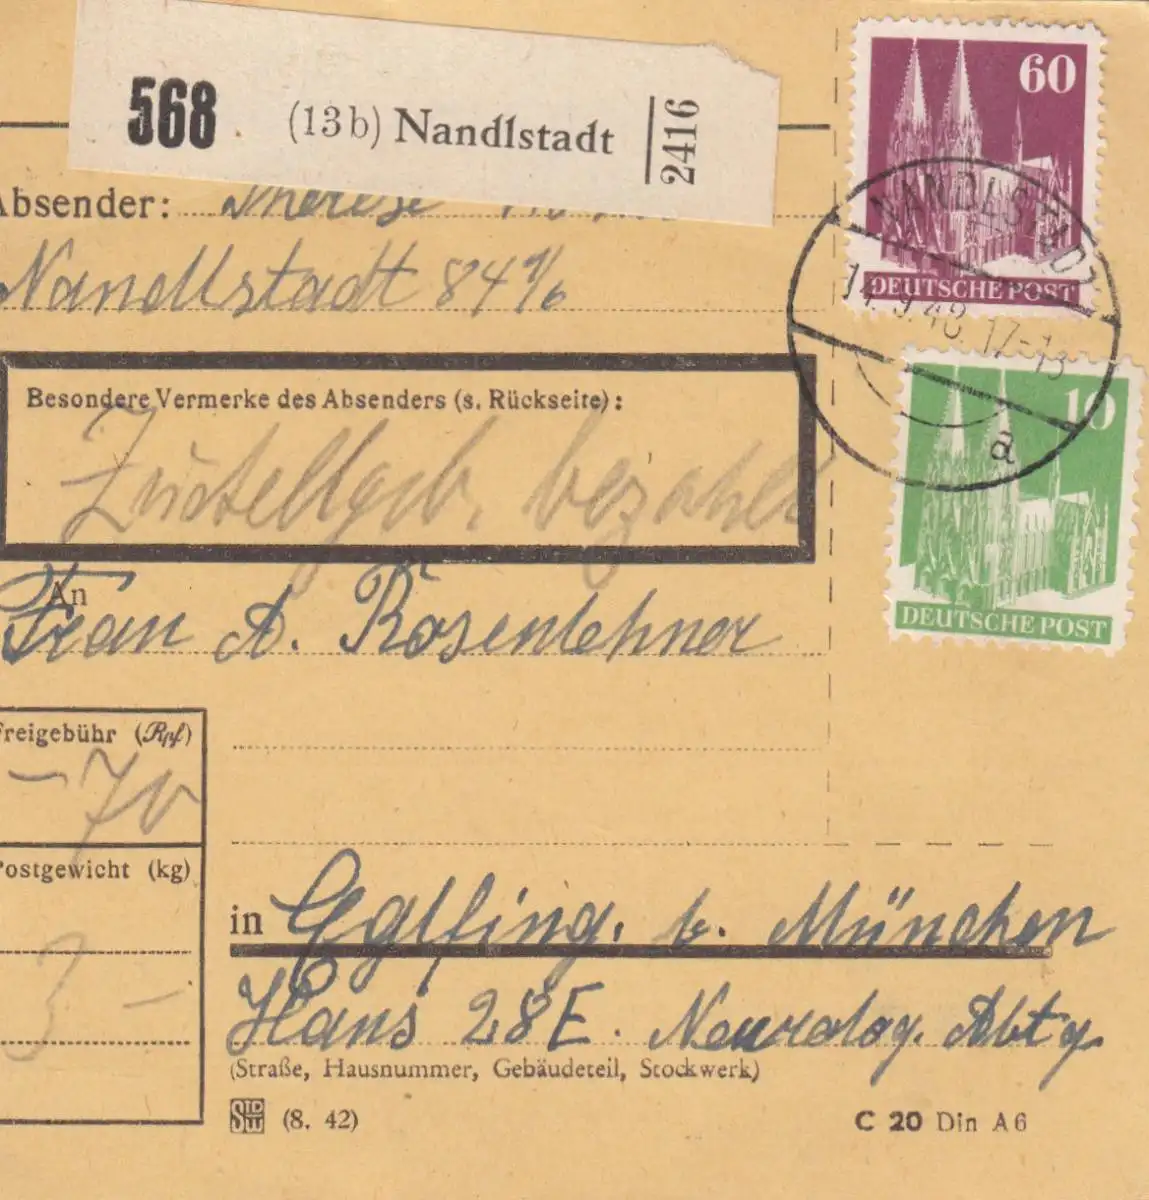 568 (13b) Nandlstadt 2416
60
DEUTSCHE POST
Absender: Therese
Nandlstadt 84 1/6
NANDLSTADT
14.9.48.17-18
a
10
DEUTSCHE POST
Besondere Vermerke des Absenders (s. Rückseite):
Zustellgeb. bezahlt
An
Frau A. Rosenlehner
Freigebühr (Rpf)
-70
Postgewicht (kg)
3-
in Eglfing. b. München
Haus 28E. Neurolog. Abtg.
(Straße, Hausnummer, Gebäudeteil, Stockwerk)
(8. 42)
C 20 Din A6